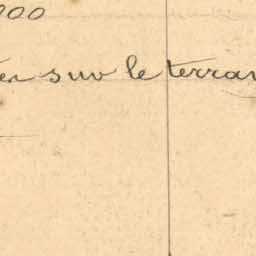 000
en sur le terra